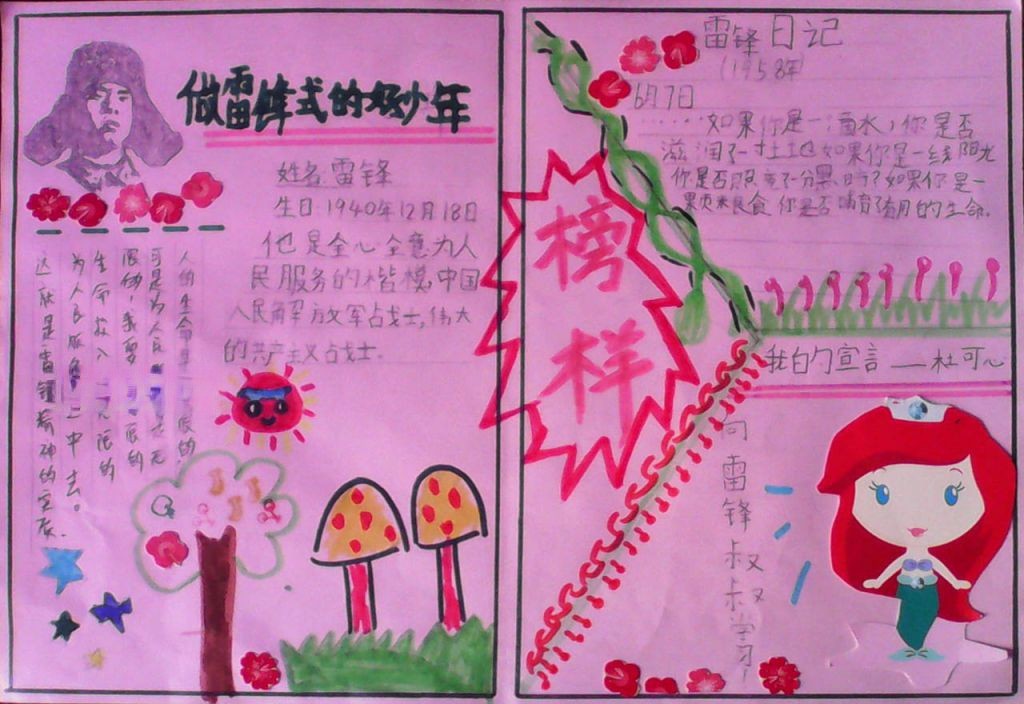 做雷锋式的好少年
姓名:雷锋
生日:1940年12月18日
他是全心全意为人
民服务的楷模,中国
人民解放军战士,伟大
的共产主义战士.
人的生命是有限的,
可是为人民服务是无
限的,我要把有限的
生命投入到无限的
为人民服务之中去。
这就是雷锋精神的实质.
榜样
雷锋日记
(1958年)
6月7日
······如果你是一滴水,你是否
滋润了一寸土地如果你是一线阳光
你是否照亮了一分黑暗?如果你是一
颗粮食你是否哺育了有用的生命.
我的宣言——杜可心
向雷锋叔叔学习